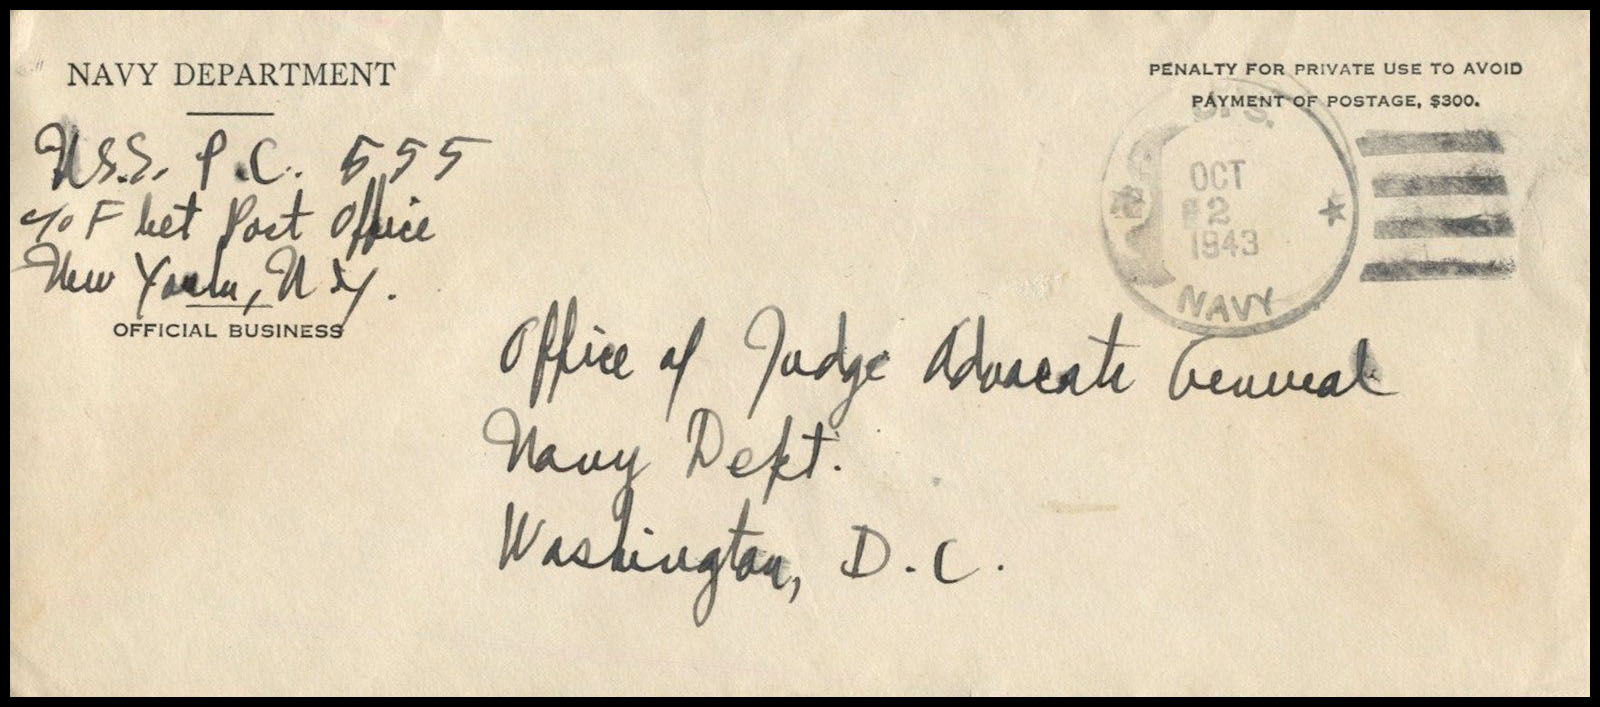 NAVY DEPARTMENT
U.S.S. P.C. 555
c/o Fleet Post Office
New York, N.Y.
OFFICIAL BUSINESS
PENALTY FOR PRIVATE USE TO AVOID
PAYMENT OF POSTAGE, $300.
U.S.
OCT
2
1943
NAVY
Office of Judge Advocate General
Navy Dept.
Washington, D.C.